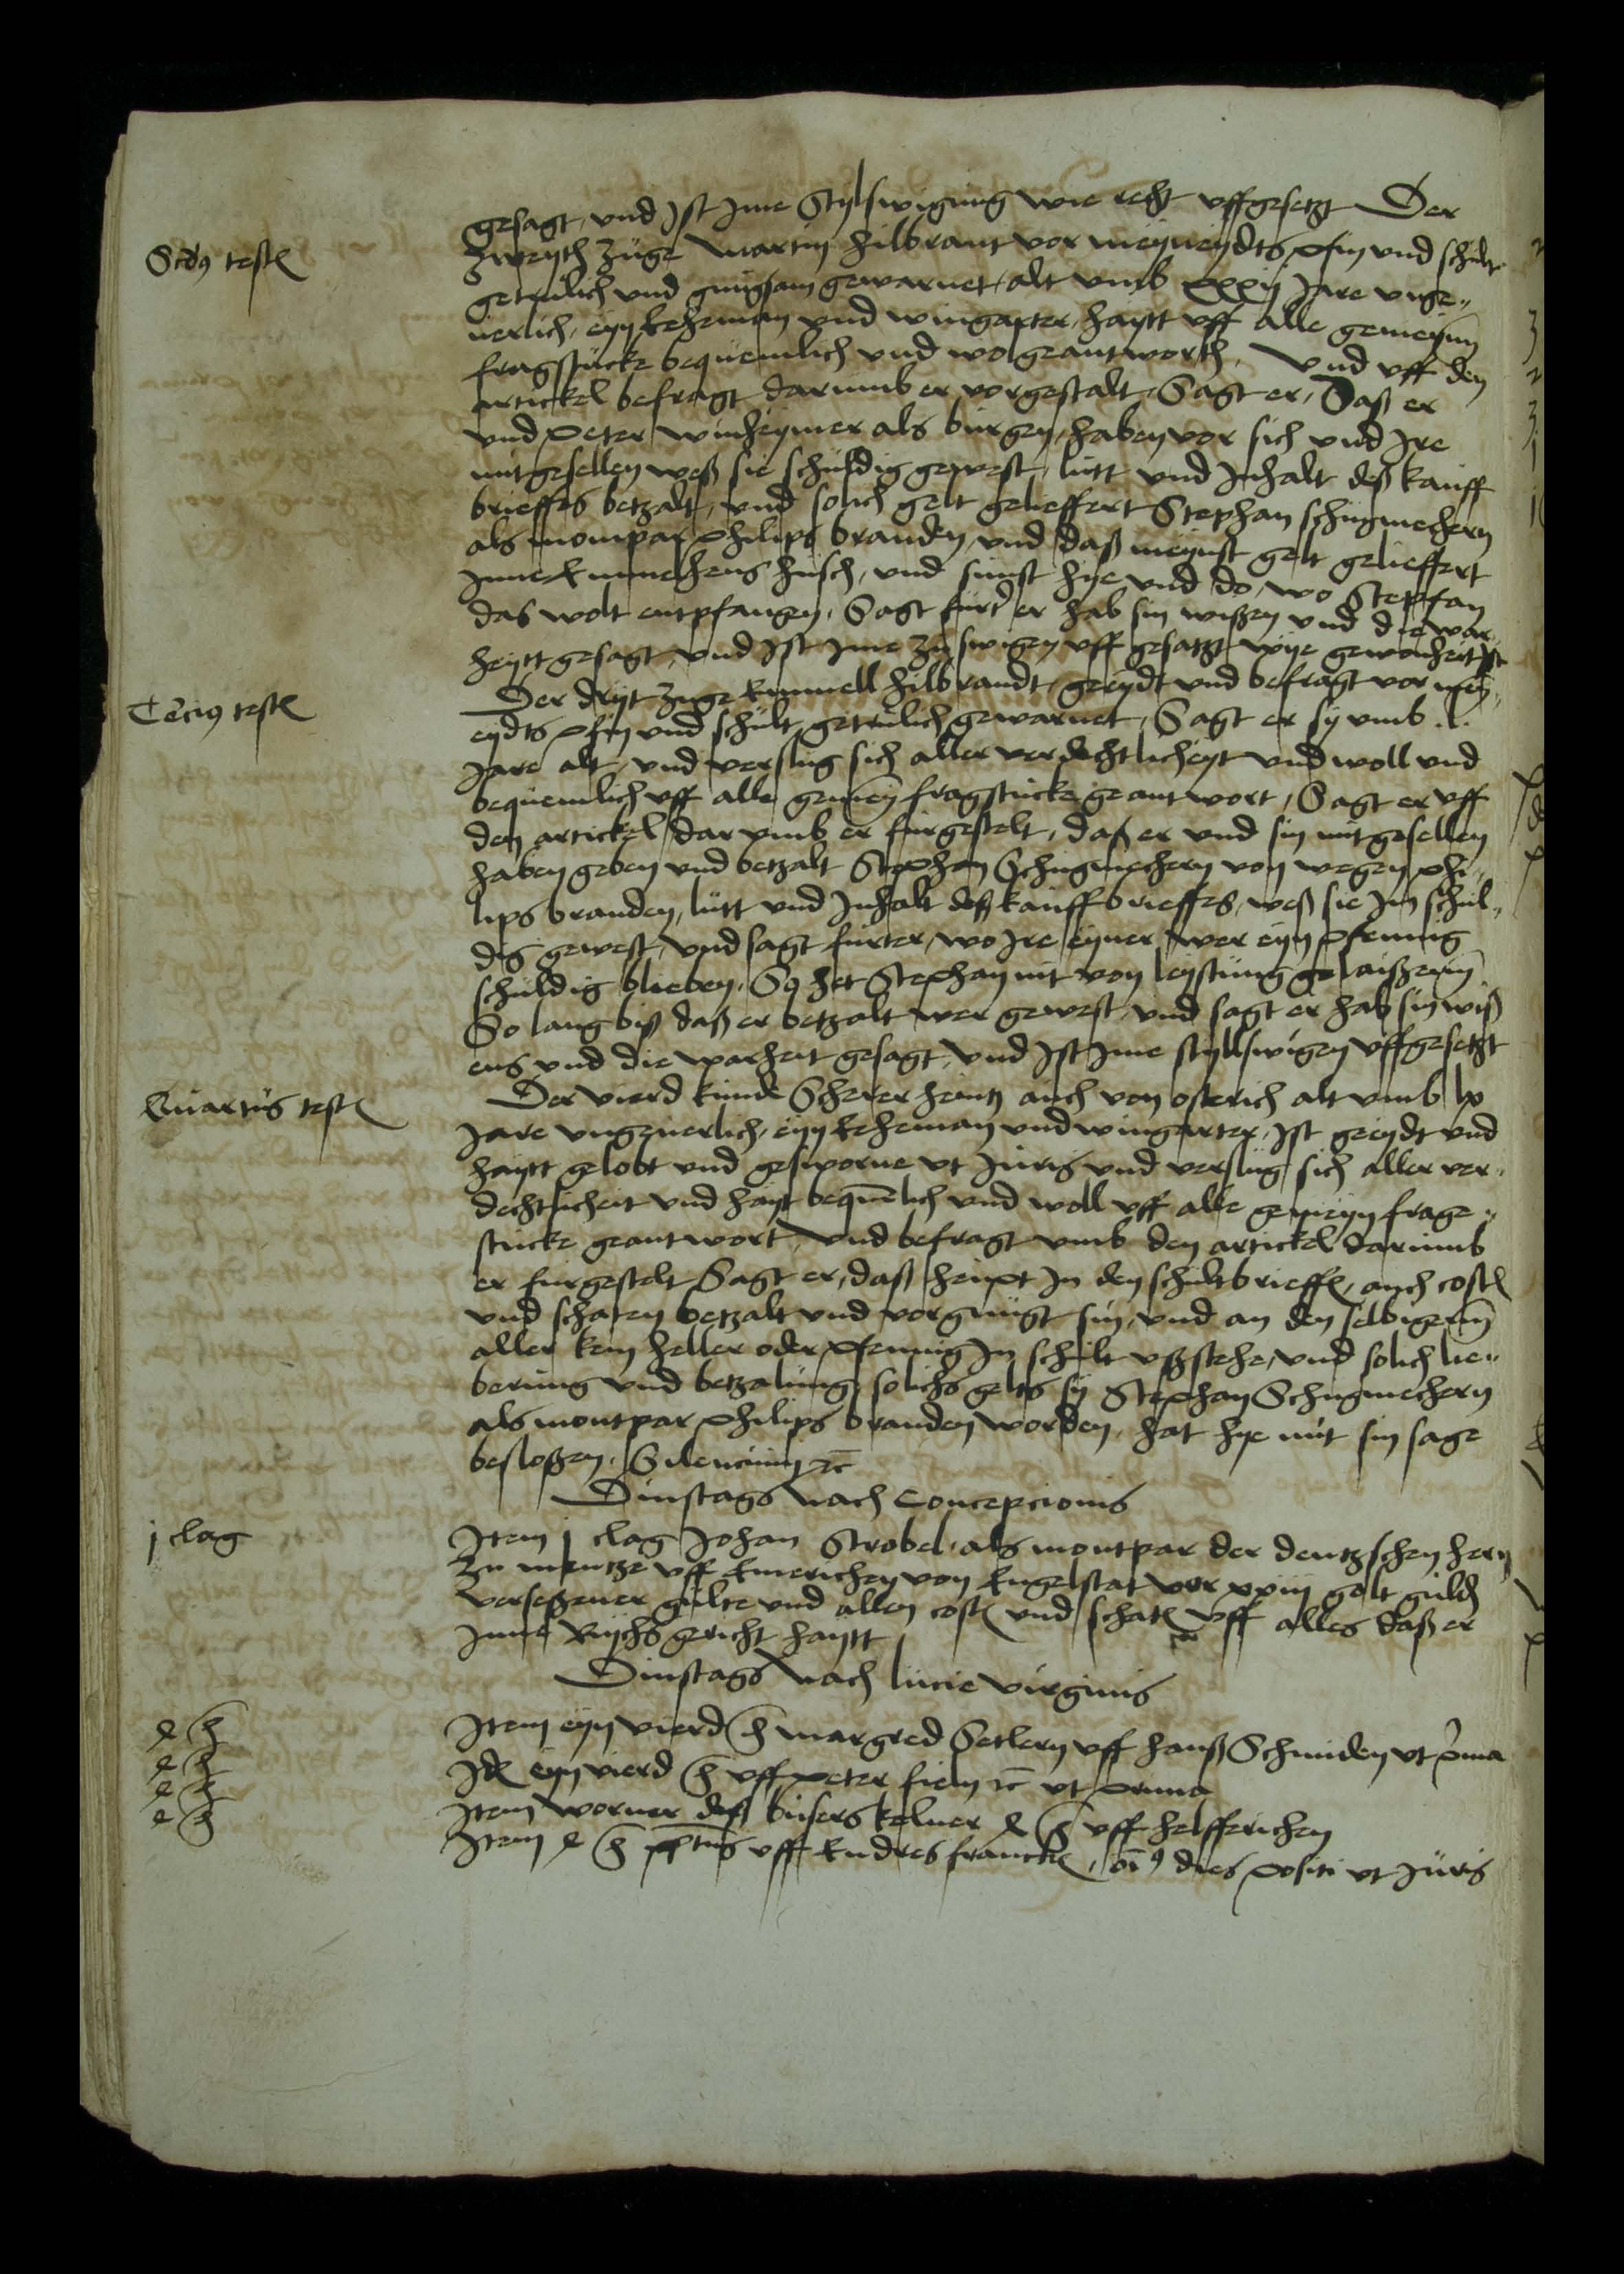 gesagt, und Ist Ime Stylswigung wie recht uffgesetzt Der
Scdus testis
zweyth zuge Martin hilbrant vor meyneydts pfin und schult
getrulich und gnugsam gewarnet, alt umb xxxij Jare unge„
uerlich, eyn leheman und wingarter, haytt uff alle gemeynn
fragstucke bequemlich und wol geantworth, Und uff den
artickel befragt darumb er vorgestalt, Sagt er, Daß er
und Peter Winheymer als burgen, haben vor sich und Ire
mitgesellen weß sie schuldig gewest, lutt und Inhalt deß kauff
brieffes betzalt, und solich gelt gelieffert Stephan schugmechern
als mompar Philips branden, und daß meynst gelt gelieffert
Inne Emmelhens husch, und sunst hye und do, wo Stepfan
das wolt entpfangen, Sagt furter er hab sin wißen und die war„
heytt gesagt, und Ist Ime zu swigen uff gesatzt wye gewonheit Ist
Tercius testis
Der dryt zuge Emmell hilbrandt, geeydt und befragt vor mey„
eydts pfin und schult, getrulich gewarnet, Sagt er sy umb .l.
Jare alt, und verslug sich aller verdechtlicheyt und woll und
bequemlich uff alle gemeyn fragstucke geantwort, Sagt er uff
den artickel dar umb er furgestelt, daß er und sin mitgesellen
haben geben und betzalt Stephan Schugmechern von wegen Phi„
lips branden, lutt und Inhalt deß kauffbrieffes, weß sie Im schul„
dig gewest, und sagt furter, wo Ire eyner wer eyn pfennig
schuldig blieben, So het Stephan nit von leystung gelaißenn
So lang biß daß er betzalt wer gewest, und sagt er hab sin wiß
ens und die warheit gesagt, und Ist Ime styllswigen uffgesetzt
Quartus testis
Der vierd kunde Scherer heintz auch von osterich alt umb lx
Jare ungeuerlich, eyn leheman und wingarter, Ist geeydt und
haytt gelobt und gesworne ut Juris und verslug sich aller ver„
dechtlicheit und hayt bequemlich und woll uff alle gemeyn frage„
stucke geantwort, und befragt umb den artickel darumb
er furgestelt Sagt er, daß heupt In den schultbrieffe, auch coste
und schaten betzalt und vorgnugt sin, und an den selbigenn
aller kein heller oder pfennig In schult ußstehe, und solich lie„
berung und betzalung solichs gelts sy Stephan Schugmechern
als montpar Philips branden worden, hat hye mit sin sage
besloßen, Silencium etc
Dinstags nach Concepcionis
j clag
Item j clag Johan Strobel, als montpar der deutzschen hern
zu mentze uff Emerichen von Engelstat vor xxiiij gelt guld
verseßener gulte und allen coste und schate uff alles daß er
Inne Rychs gericht haytt
Dinstags nach lucie virginis
Item eyn vierd h margred Setlern uff hanß Schmiden ut prima
It eyn vierd h uff Peter fieln etc ut prima
Item worner deß busers kelner e h uff helfferichen
Item e h uff Endres francken, dies positi ut Juris